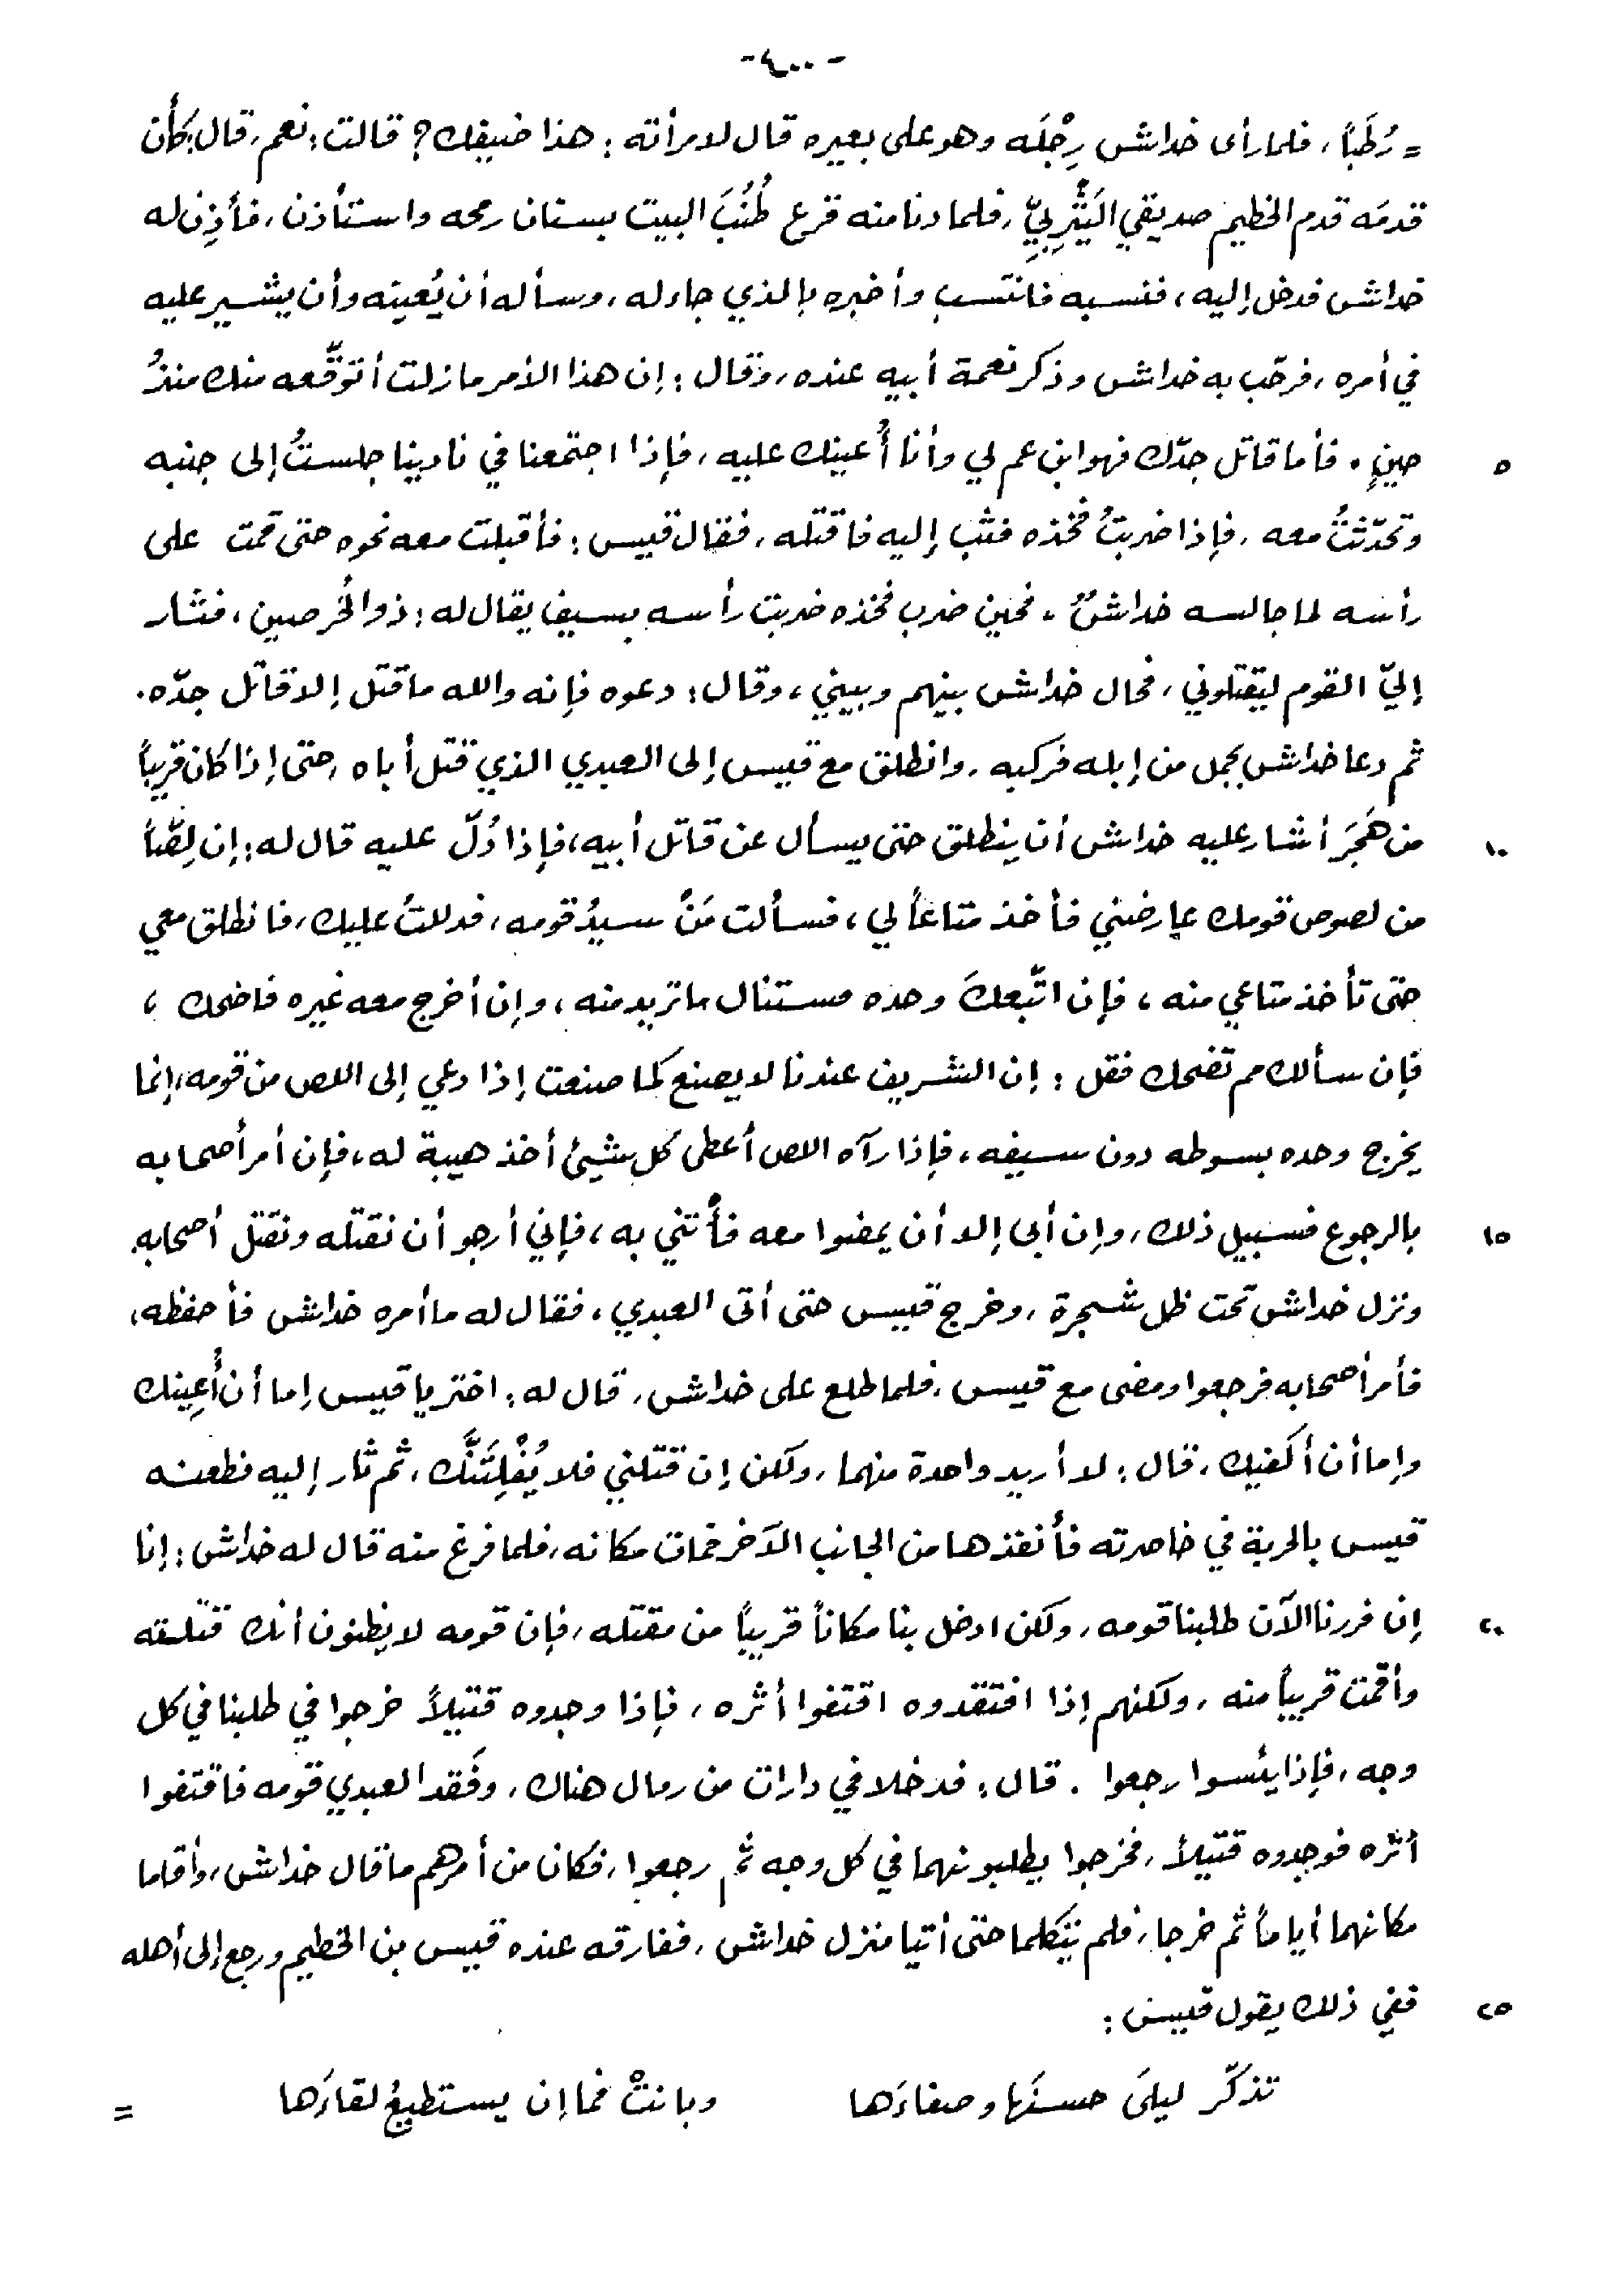 - ٤٠٠ -
= رُطَباً، فلما رأى خداش رِجْلَه وهو على بعيره قال لامرأته : هذا ضيفك؟ قالت : نعم، قال: كأن
قدمَه قدم الخطيم صديقي اليَثْرِبيِّ، فلما دنا منه قرع طُنُبَ البيت بسنان رمحه واستأذن، فأذِن له
خداش فدخل إليه، فنسبه فانتسب وأخبره بالذي جاء له، وسأله أن يُعينه وأن يشير عليه
في أمره، فرحّب به خداش وذكر نعمة أبيه عنده، وقال : إن هذا الأمر ما زلت أتوقّعه منك منذُ
حينٍ. فأما قاتل جدّك فهو ابن عم لي وأنا أُعينك عليه، فإذا اجتمعنا في نادينا جلستُ إلى جنبه
٥
وتحدّثتُ معه، فإذا ضربتُ فخذه فثب إليه فاقتله، فقال قيس : فأقبلت معه نحوه حتى قمت على
رأسه لما جالسه خداشٌ، فحين ضرب فخذه ضربت رأسه بسيف يقال له : ذو الخُرصين، فثار
إليّ القوم ليقتلوني، فحال خداش بينهم وبيني، وقال : دعوه فإنه والله ما قتل إلا قاتل جدّه.
ثم دعا خداش بجمل من إبله فركبه، وانطلق مع قيس إلى العبدي الذي قتل أباه، حتى إذا كان قريباً
من هَجَرَ أشار عليه خداش أن ينطلق حتى يسأل عن قاتل أبيه، فإذا دُلّ عليه قال له : إن لِصّاً
١٠
من لصوص قومك عارضني فأخذ متاعاً لي، فسألت مَنْ سيدُ قومه، فدللتُ عليك، فانطلق معي
حتى تأخذ متاعي منه، فإن اتّبعكَ وحده فستنال ما تريد منه، وإن أخرج معه غيره فاضحك،
فإن سألك مم تضحك فقل : إن الشريف عندنا لا يصنع كما صنعت إذا دعي إلى اللص من قومه، إنما
يخرج وحده بسوطه دون سيفه، فإذا رآه اللص أعطى كل شيئ أخذ هيبة له، فإن أمر أصحابه
بالرجوع فسبيل ذلك، وإن أبى إلا أن يمضوا معه فأْتني به، فإني أرجو أن نقتله ونقتل أصحابه.
١٥
ونزل خداش تحت ظل شجرة، وخرج قيس حتى أتى العبدي، فقال له ما أمره خداش فأحفظه،
فأمر أصحابه فرجعوا ومضى مع قيس، فلما طلع على خداش، قال له : اختر يا قيس إما أن أُعِينك
وإما أن أكفيك، قال : لا أريد واحدة منهما، ولكن إن قتلني فلا يُفْلِتَنَّك، ثم ثار إليه فطعنه
قيس بالحربة في خاصرته فأنفذها من الجانب الآخر فمات مكانه، فلما فرغ منه قال له خداش : إنا
إن فررنا الآن طلبنا قومه، ولكن ادخل بنا مكاناً قريباً من مقتله، فإن قومه لا يظنون أنك قتلته
٢٠
وأقمت قريباً منه، ولكنهم إذا افتقدوه اقتفوا أثره، فإذا وجدوه قتيلاً خرجوا في طلبنا في كل
وجه، فإذا يئسوا رجعوا . قال : فدخلا في دارات من رمال هناك، وفَقد العبدي قومه فاقتفوا
أثره فوجدوه قتيلاً، فخرجوا يطلبونهما في كل وجه ثم رجعوا، فكان من أمرهم ما قال خداش، وأقاما
مكانهما أياماً ثم خرجا، فلم يتكلما حتى أتيا منزل خداش، ففارقه عنده قيس بن الخطيم ورجع إلى أهله
ففي ذلك يقول قيس :
٢٥
تذكّر ليلَى حسنَها وصفاءَها وبانتْ فما إن يستطيعُ لقاءَها =